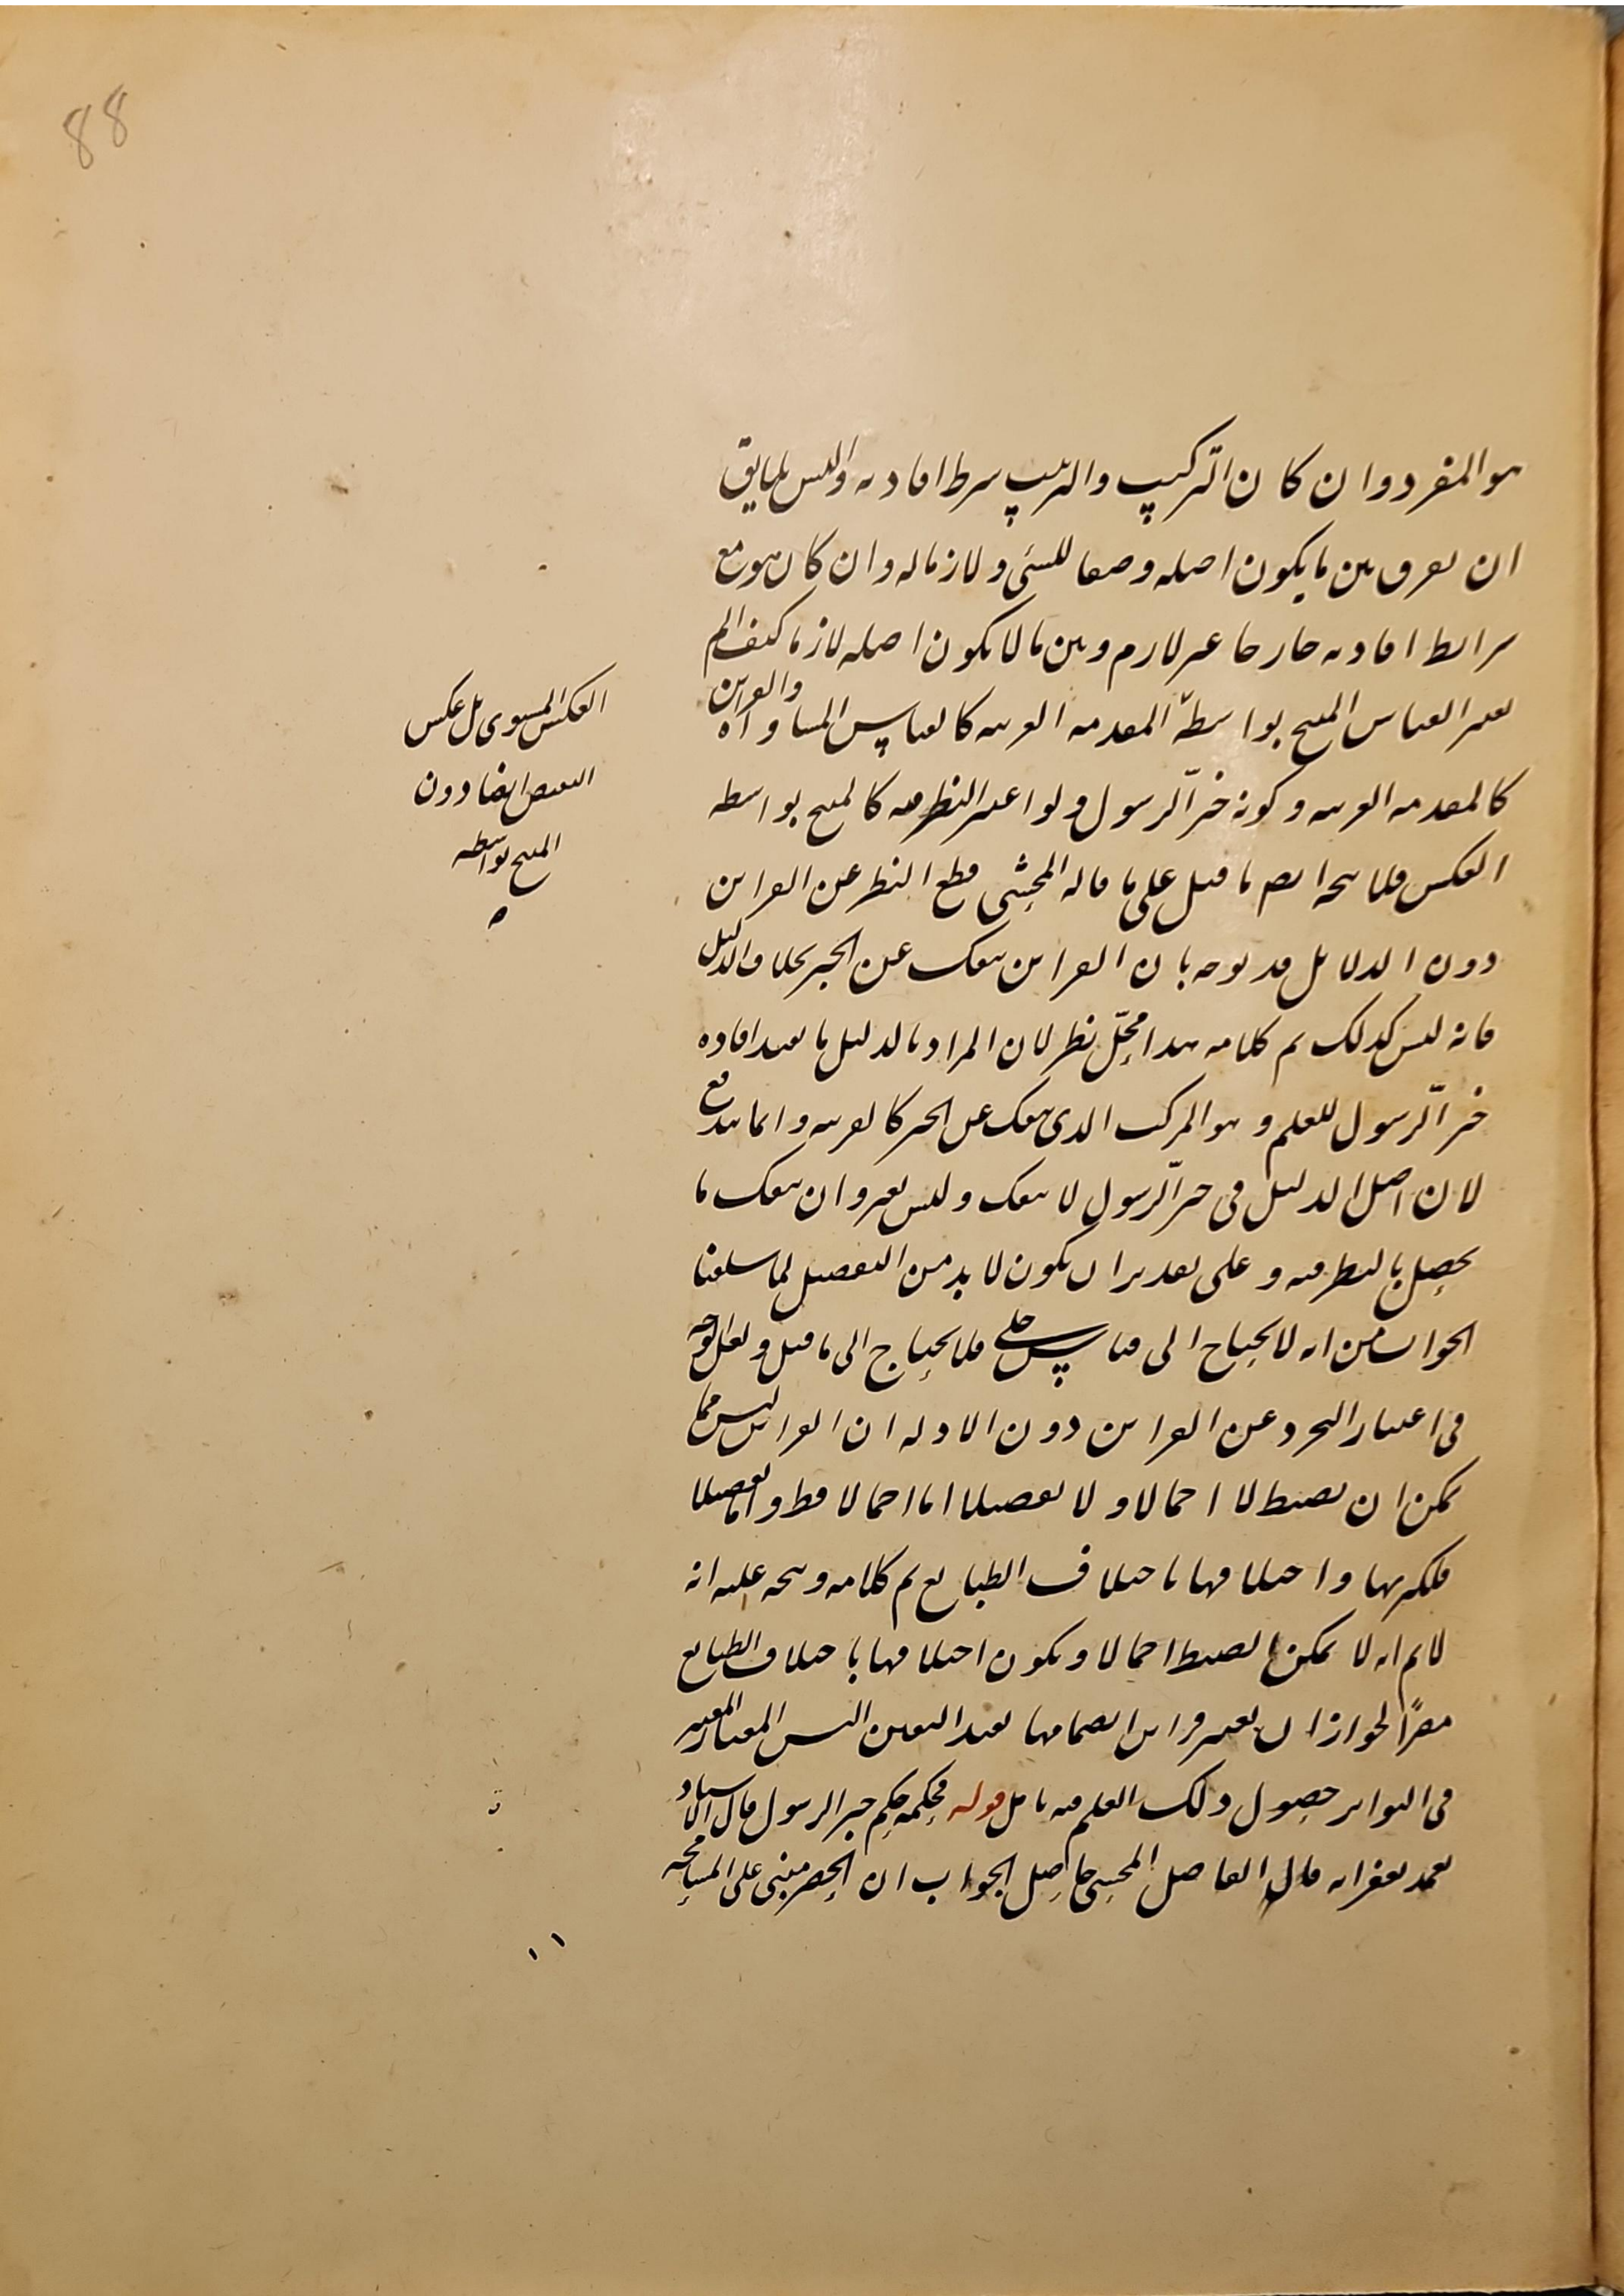 88
هو المفرد وان كان التركيب والترتيب شرط افادته والفرق
ان يفرق بين ما يكون اصله وصفا للشئ ولازما له وان كان هو مع
شرايط افادته خارجا غير لازم وبين ما لا يكون اصله لازما كيف
يعتبر القياس المنتج بواسطة المقدمة الغريبة كالقياس المساواة
والقراين
كالمقدمة الغريبة وكونه خبر الرسول ولو اعتبر النظر فيه كالمنتج بواسطة
العكس فلا يتجه ايضا ما قيل على ما قاله المحشى قطع النظر عن القراين
دون الدلايل قد يوجه بان القراين تنفك عن الخبر بخلاف الدليل
فانه ليس كذلك تم كلامه هذا محل نظر لان المراد بالدليل ما يفيد افاده
خبر الرسول للعلم وهو المركب الذى ينفك عن الخبر كالقرينه وانما يندفع
لان اصل الدليل فى خبر الرسول لا ينفك وليس بغيره وان ينفك ما
يحصل بالنظر فيه وعلى تقدير ان يكون لا بد من التفصيل لما سلفنا
الجواب من انه لا يحتاج الى قياس خفى فلا يحتاج الى ما قيل ولعل الوجه
فى اعتبار التجرد عن القراين دون الادله ان القراين ليس مما
يمكن ان يضبط لا اجمالا ولا تفصيلا اما اجمالا فظ واما تفصيلا
فلكثرتها واختلافها باختلاف الطبايع تم كلامه ويتجه عليه انه
لا تم انه لا يمكن الضبط اجمالا ويكون اختلافها باختلاف الطبايع
مضرا لجواز ان يعتبر قراين انضمامها يفيد اليقين اليس المعيار المعتبر
فى التواتر حصول ذلك العلم فيه تامل قوله فحكمه حكم خبر الرسول قال الاستاد
تغمد بغفرانه قال الفاضل المحشى حاصل الجواب ان الحصر مبنى على المسامحه
العكس المستوى بل عكس
النقيض ايضا دون
المنتج بواسطه